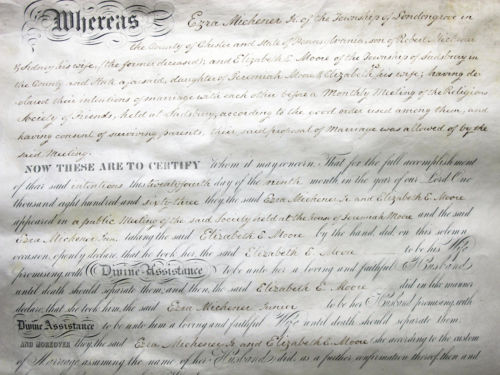 Whereas Ezra Michener Jr. of the Township of Londongrove in
the County of Chester and State of Pennsylvania, son of Robert Michener
& Sidney his wife, (the former deceased), and Elizabeth E. Moore of the Township of Sadsbury in
the County and State aforesaid, daughter of Jeremiah Moore & Elizabeth, his wife; having de-
clared their intentions of marriage with each other before a Monthly Meeting of the Religious
Society of Friends, held at Sadsbury, according to the good order used among them, and
having consent of surviving parents, their said proposal of Marriage was allowed of by the
said Meeting.
NOW THESE ARE TO CERTIFY Whom it may concern, That for the full accomplishment
of their said intentions, this twenty fourth day of the ninth month in the year of our Lord One
thousand eight hundred and sixty three they, the said Ezra Michener Jr. and Elizabeth E. Moore
appeared in a public Meeting of the said Society held at the house of Jeremiah Moore and the said
Ezra Michener Jun. taking the said Elizabeth E. Moore by the hand, did on this solemn
occasion, openly declare, that he took her, the said Elizabeth E. Moore to be his Wife,
promising, with Divine Assistance to be unto her a loving and faithful Husband
until death should separate them, and then, the said Elizabeth E. Moore did in like manner
declare, that she took him, the said Ezra Michener Junior to be her Husband, promising, with
Divine Assistance to be unto him a loving and faithful Wife until death should separate them.
AND MOREOVER they, the said Ezra Michener Jr. and Elizabeth E. Moore (she according to the custom
of Marriage assuming the name of her Husband) did, as a further confirmation thereof, then and